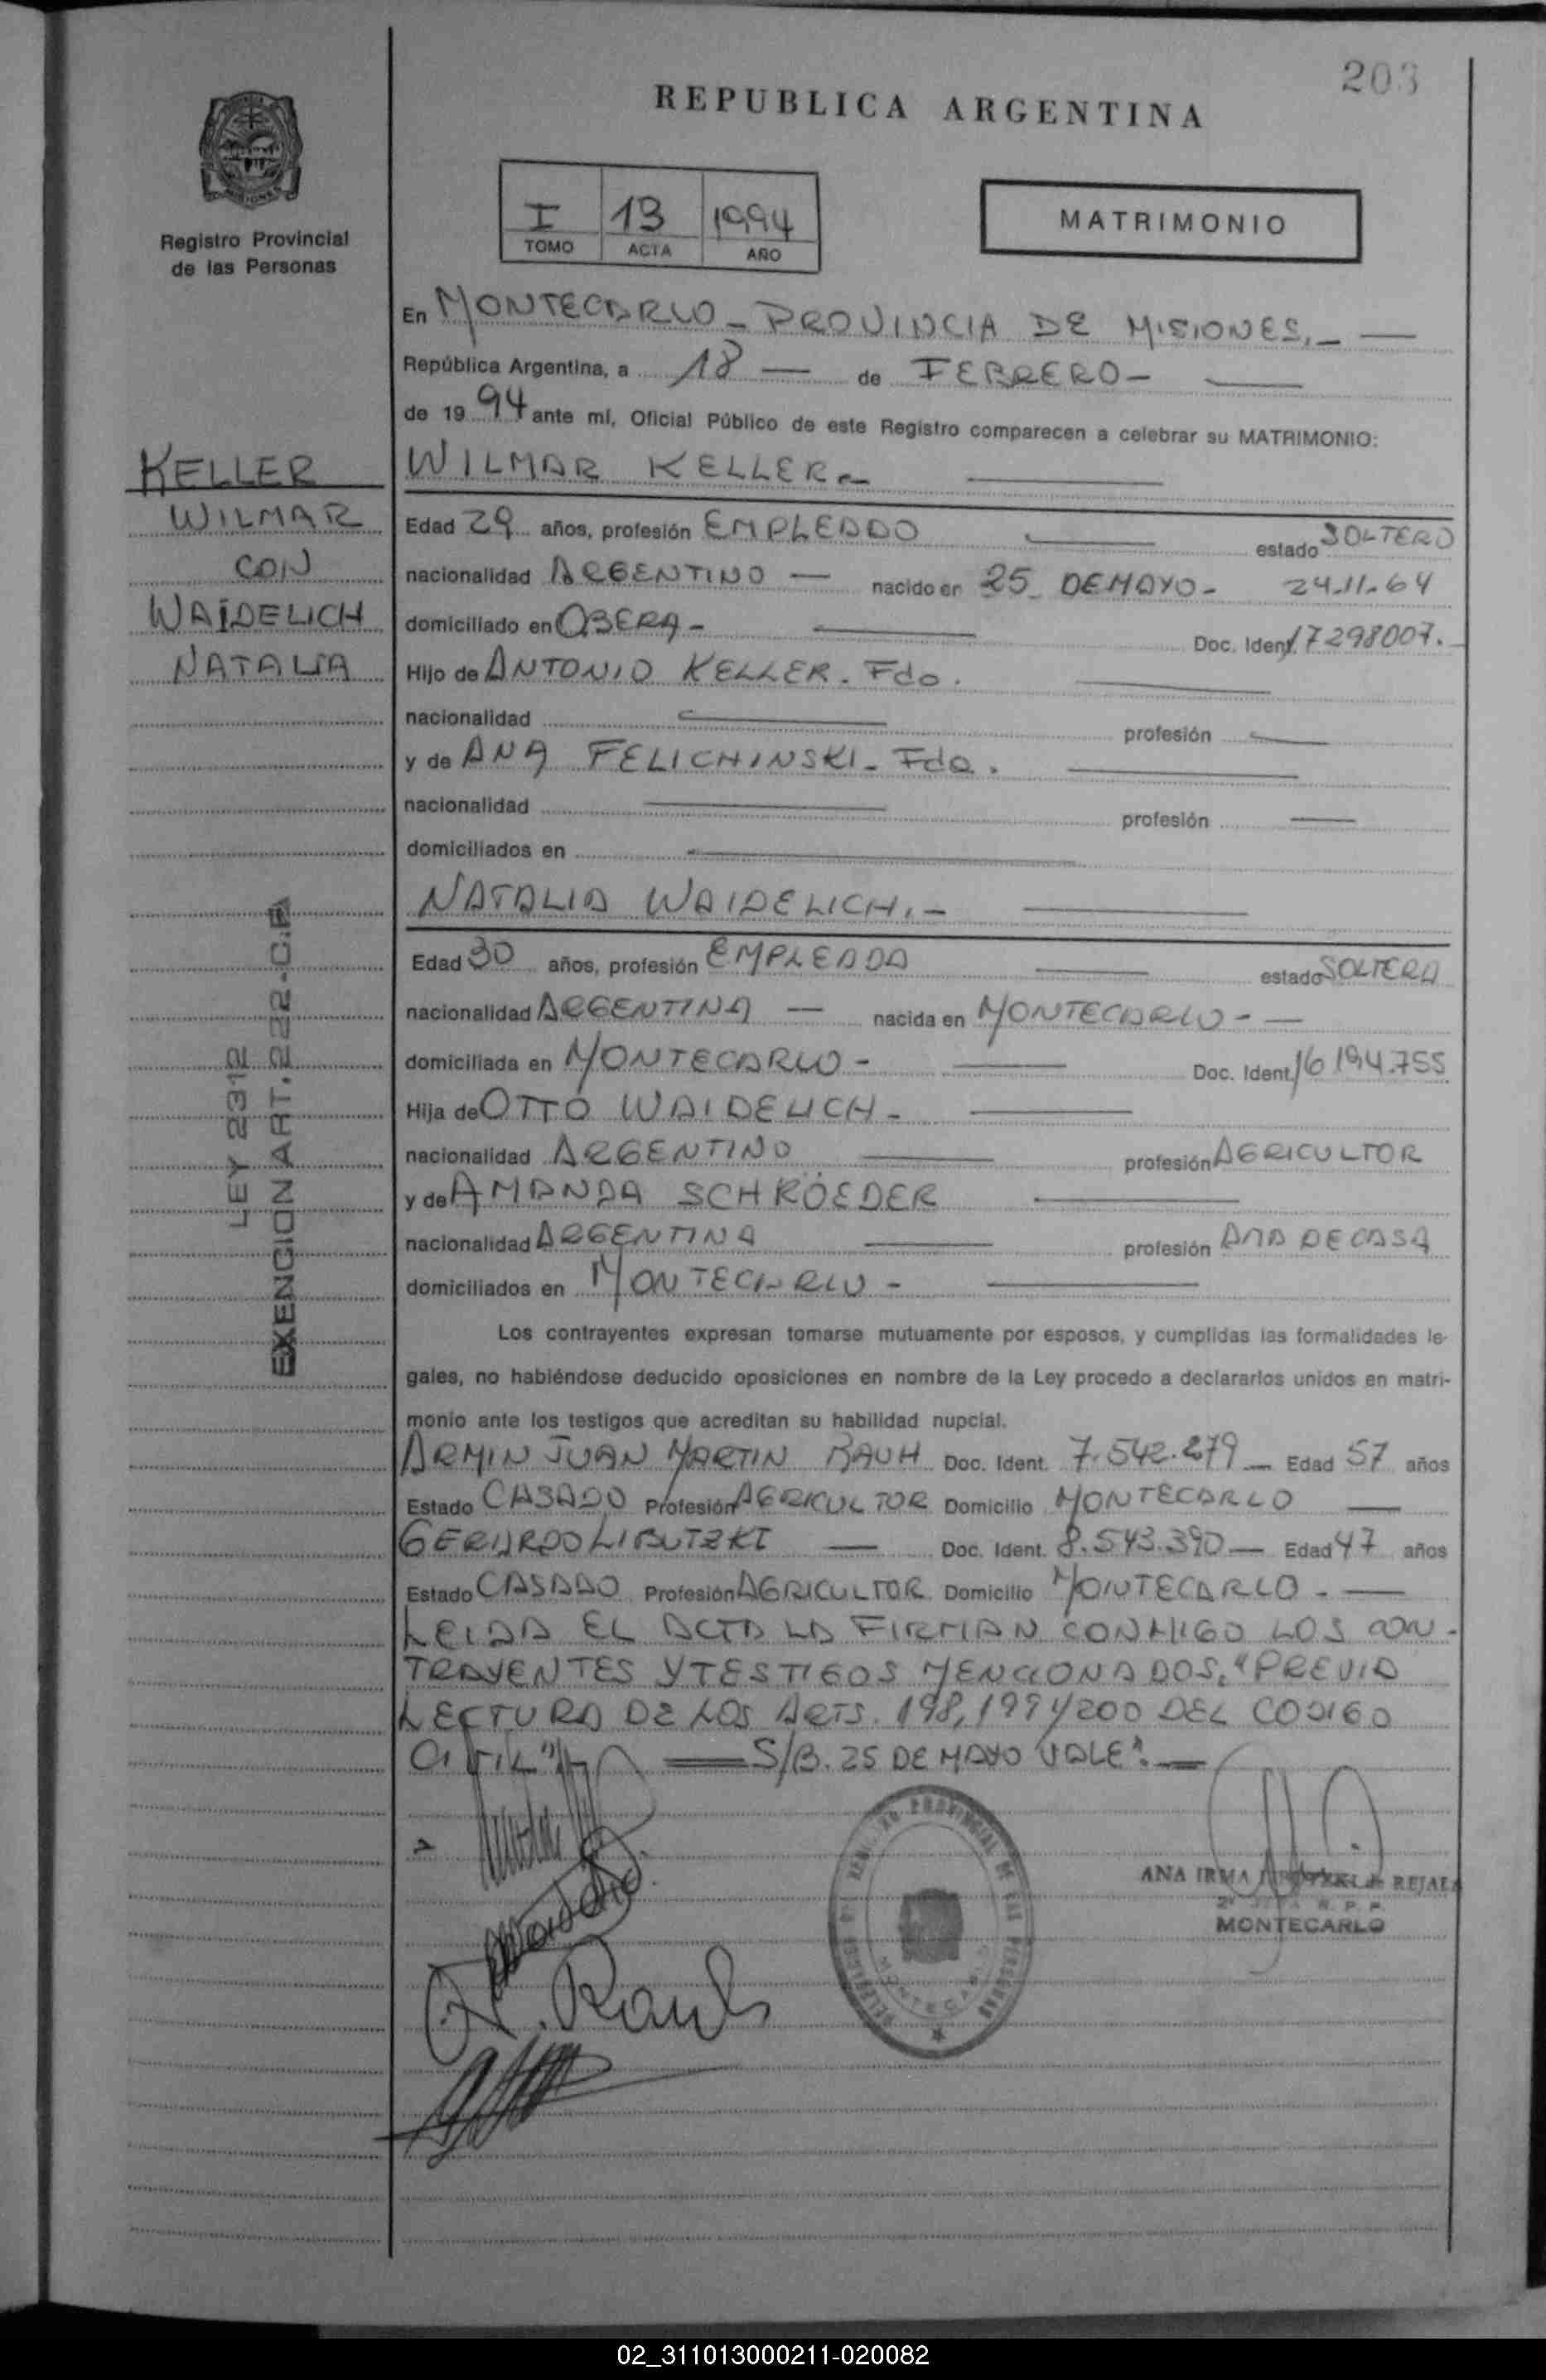 203
REPUBLICA ARGENTINA
Registro Provincial
de las Personas
I 13 1994
TOMO ACTA AÑO
MATRIMONIO
En MONTECARLO - PROVINCIA DE MISIONES.-
República Argentina, a 18 — de FEBRERO-
de 1994 ante mí, Oficial Público de este Registro comparecen a celebrar su MATRIMONIO:
KELLER
WILMAR
CON
WAIDELICH
NATALIA
WILMAR KELLER-
Edad 29 años, profesión EMPLEADO estado SOLTERO
nacionalidad ARGENTINO — nacido en 25 DE MAYO- 24-11-64
domiciliado en OBERA- Doc. Ident. 17298007.
Hijo de ANTONIO KELLER. Fdo.
nacionalidad profesión
y de ANA FELICHINSKI- Fda.
nacionalidad profesión
domiciliados en
NATALIA WAIDELICH.-
Edad 30 años, profesión EMPLEADA estado SOLTERA
nacionalidad ARGENTINA — nacida en MONTECARLO- —
domiciliada en MONTECARLO- Doc. Ident. 16194.755
Hija de OTTO WAIDELICH-
nacionalidad ARGENTINO profesión AGRICULTOR
y de AMANDA SCHRÖEDER
nacionalidad ARGENTINA profesión AMA DE CASA
domiciliados en MONTECARLO-
LEY 2312
EXENCION ART. 222-C.P.
Los contrayentes expresan tomarse mutuamente por esposos, y cumplidas las formalidades le-
gales, no habiéndose deducido oposiciones en nombre de la Ley procedo a declararlos unidos en matri-
monio ante los testigos que acreditan su habilidad nupcial.
ARMIN JUAN MARTIN RAUH Doc. Ident. 7.542.279 — Edad 57 años
Estado CASADO Profesión AGRICULTOR Domicilio MONTECARLO —
GERARDO LIBUTZKI — Doc. Ident. 8.543.390 — Edad 47 años
Estado CASADO Profesión AGRICULTOR Domicilio MONTECARLO- —
LEIDA EL ACTA LA FIRMAN CONMIGO LOS CON-
TRAYENTES Y TESTIGOS MENCIONADOS, "PREVIA
LECTURA DE LOS ARTS. 198, 199 Y 200 DEL CODIGO
CIVIL" — S/B. 25 DE MAYO VALE". —
A. Rauh
ANA IRMA REJALA
MONTECARLO
MONTECARLO
02_311013000211-020082